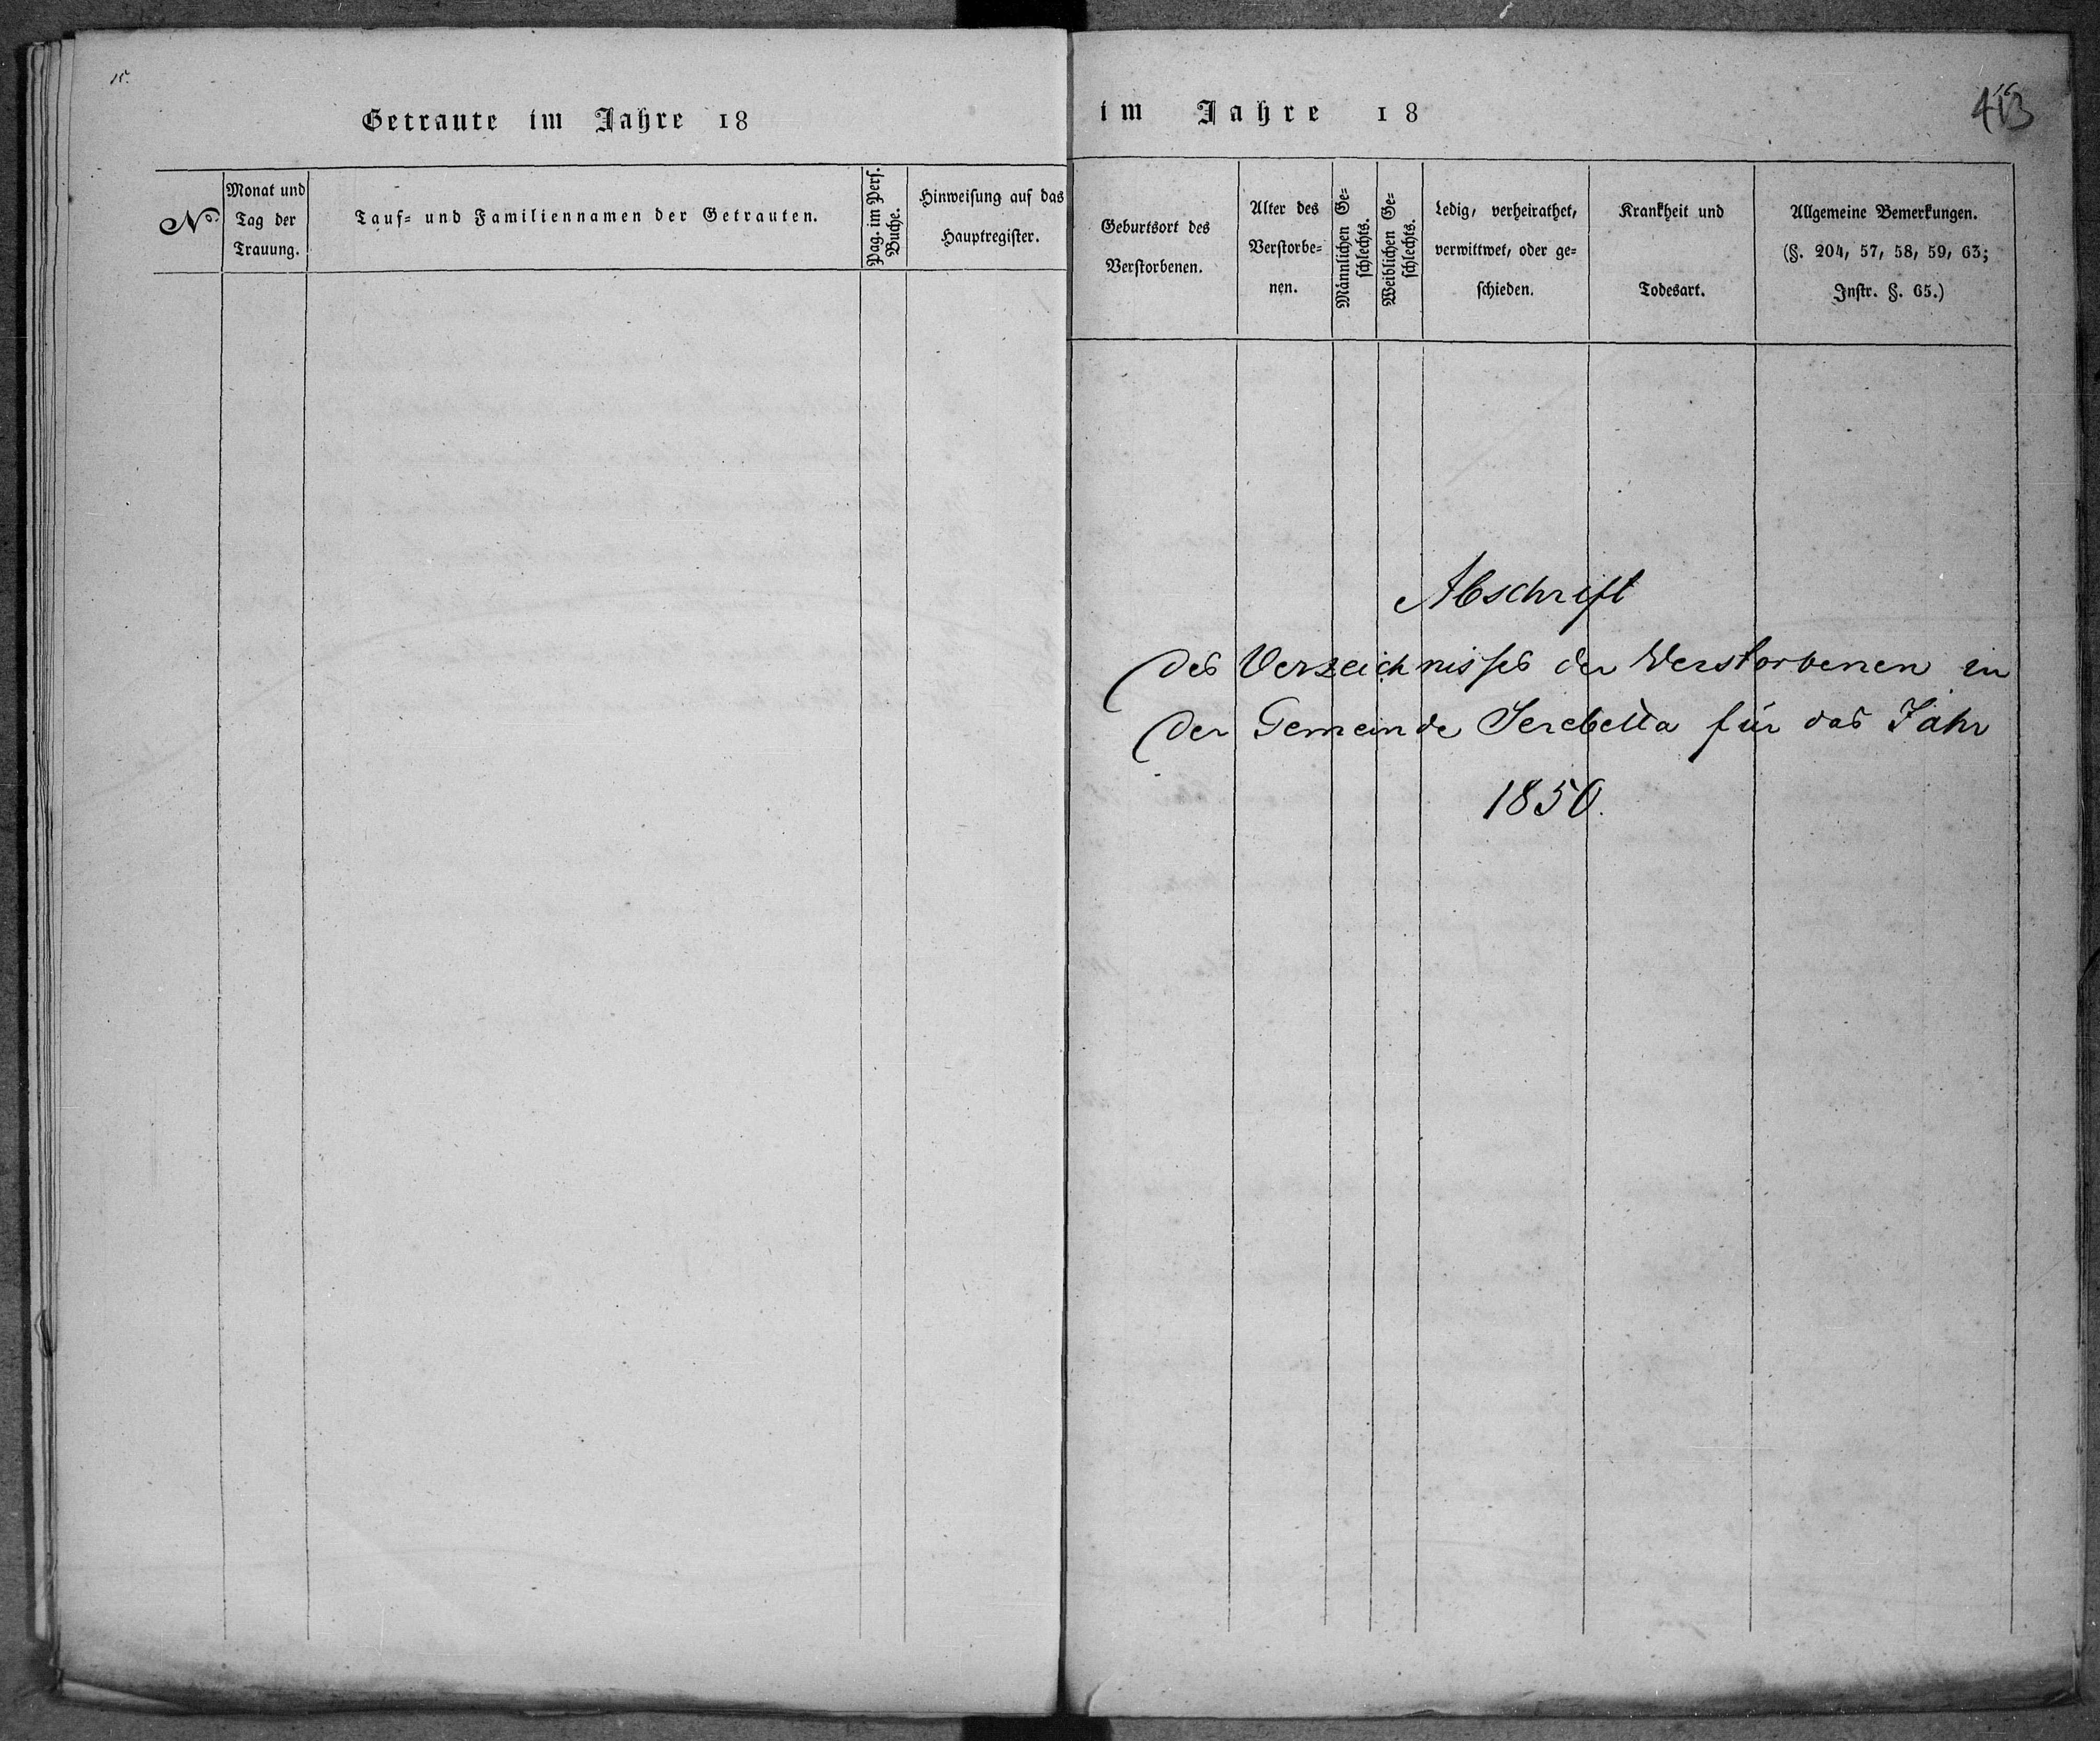 15.
Getraute im Jahre 18
No.
Monat und
Tag der
Trauung.
Tauf- und Familiennamen der Getrauten.
Pag. im Pers.
Buche.
Hinweisung auf das
Hauptregister.
im Jahre 18
413
Geburtsort des
Verstorbenen.
Alter des
Verstorbe-
nen.
Männlichen Ge-
schlechts.
Weiblichen Ge-
schlechts.
Ledig, verheirathet,
verwittwet, oder ge-
schieden.
Krankheit und
Todesart.
Allgemeine Bemerkungen.
(§. 204, 57, 58, 59, 63;
Instr. §. 65.)
Abschrift
des Verzeichnisses der Verstorbenen in
der Gemeinde Serebella für das Jahr
1850.